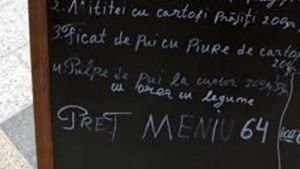 2. Mititei cu cartofi prăjiți 200gr/
3. Ficat de pui cu piure de cartofi
4. Pulpe de pui la cuptor 200g/
cu orez cu legume
PREȚ MENIU 64